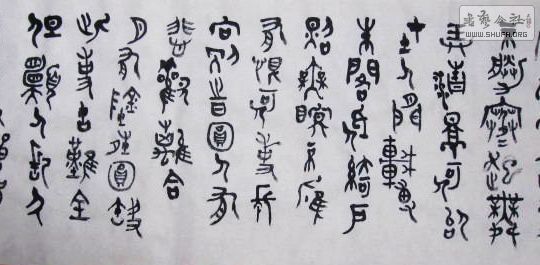 不勝寒起舞
弄清影何似
在人間轉
朱閣低綺戶
照無眠不應
有恨何事長
向別時圓人有
悲歡離合
月有陰晴圓缺
此事古難全
但願人長久
书艺公社
WWW.SHUFA.COM